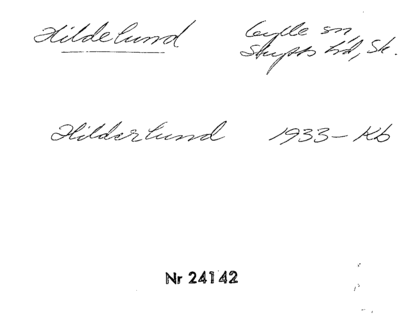 Hildelund Gylle sn,
Skytts hd, Sk.
Hilderlund 1933- Kb
Nr 24142